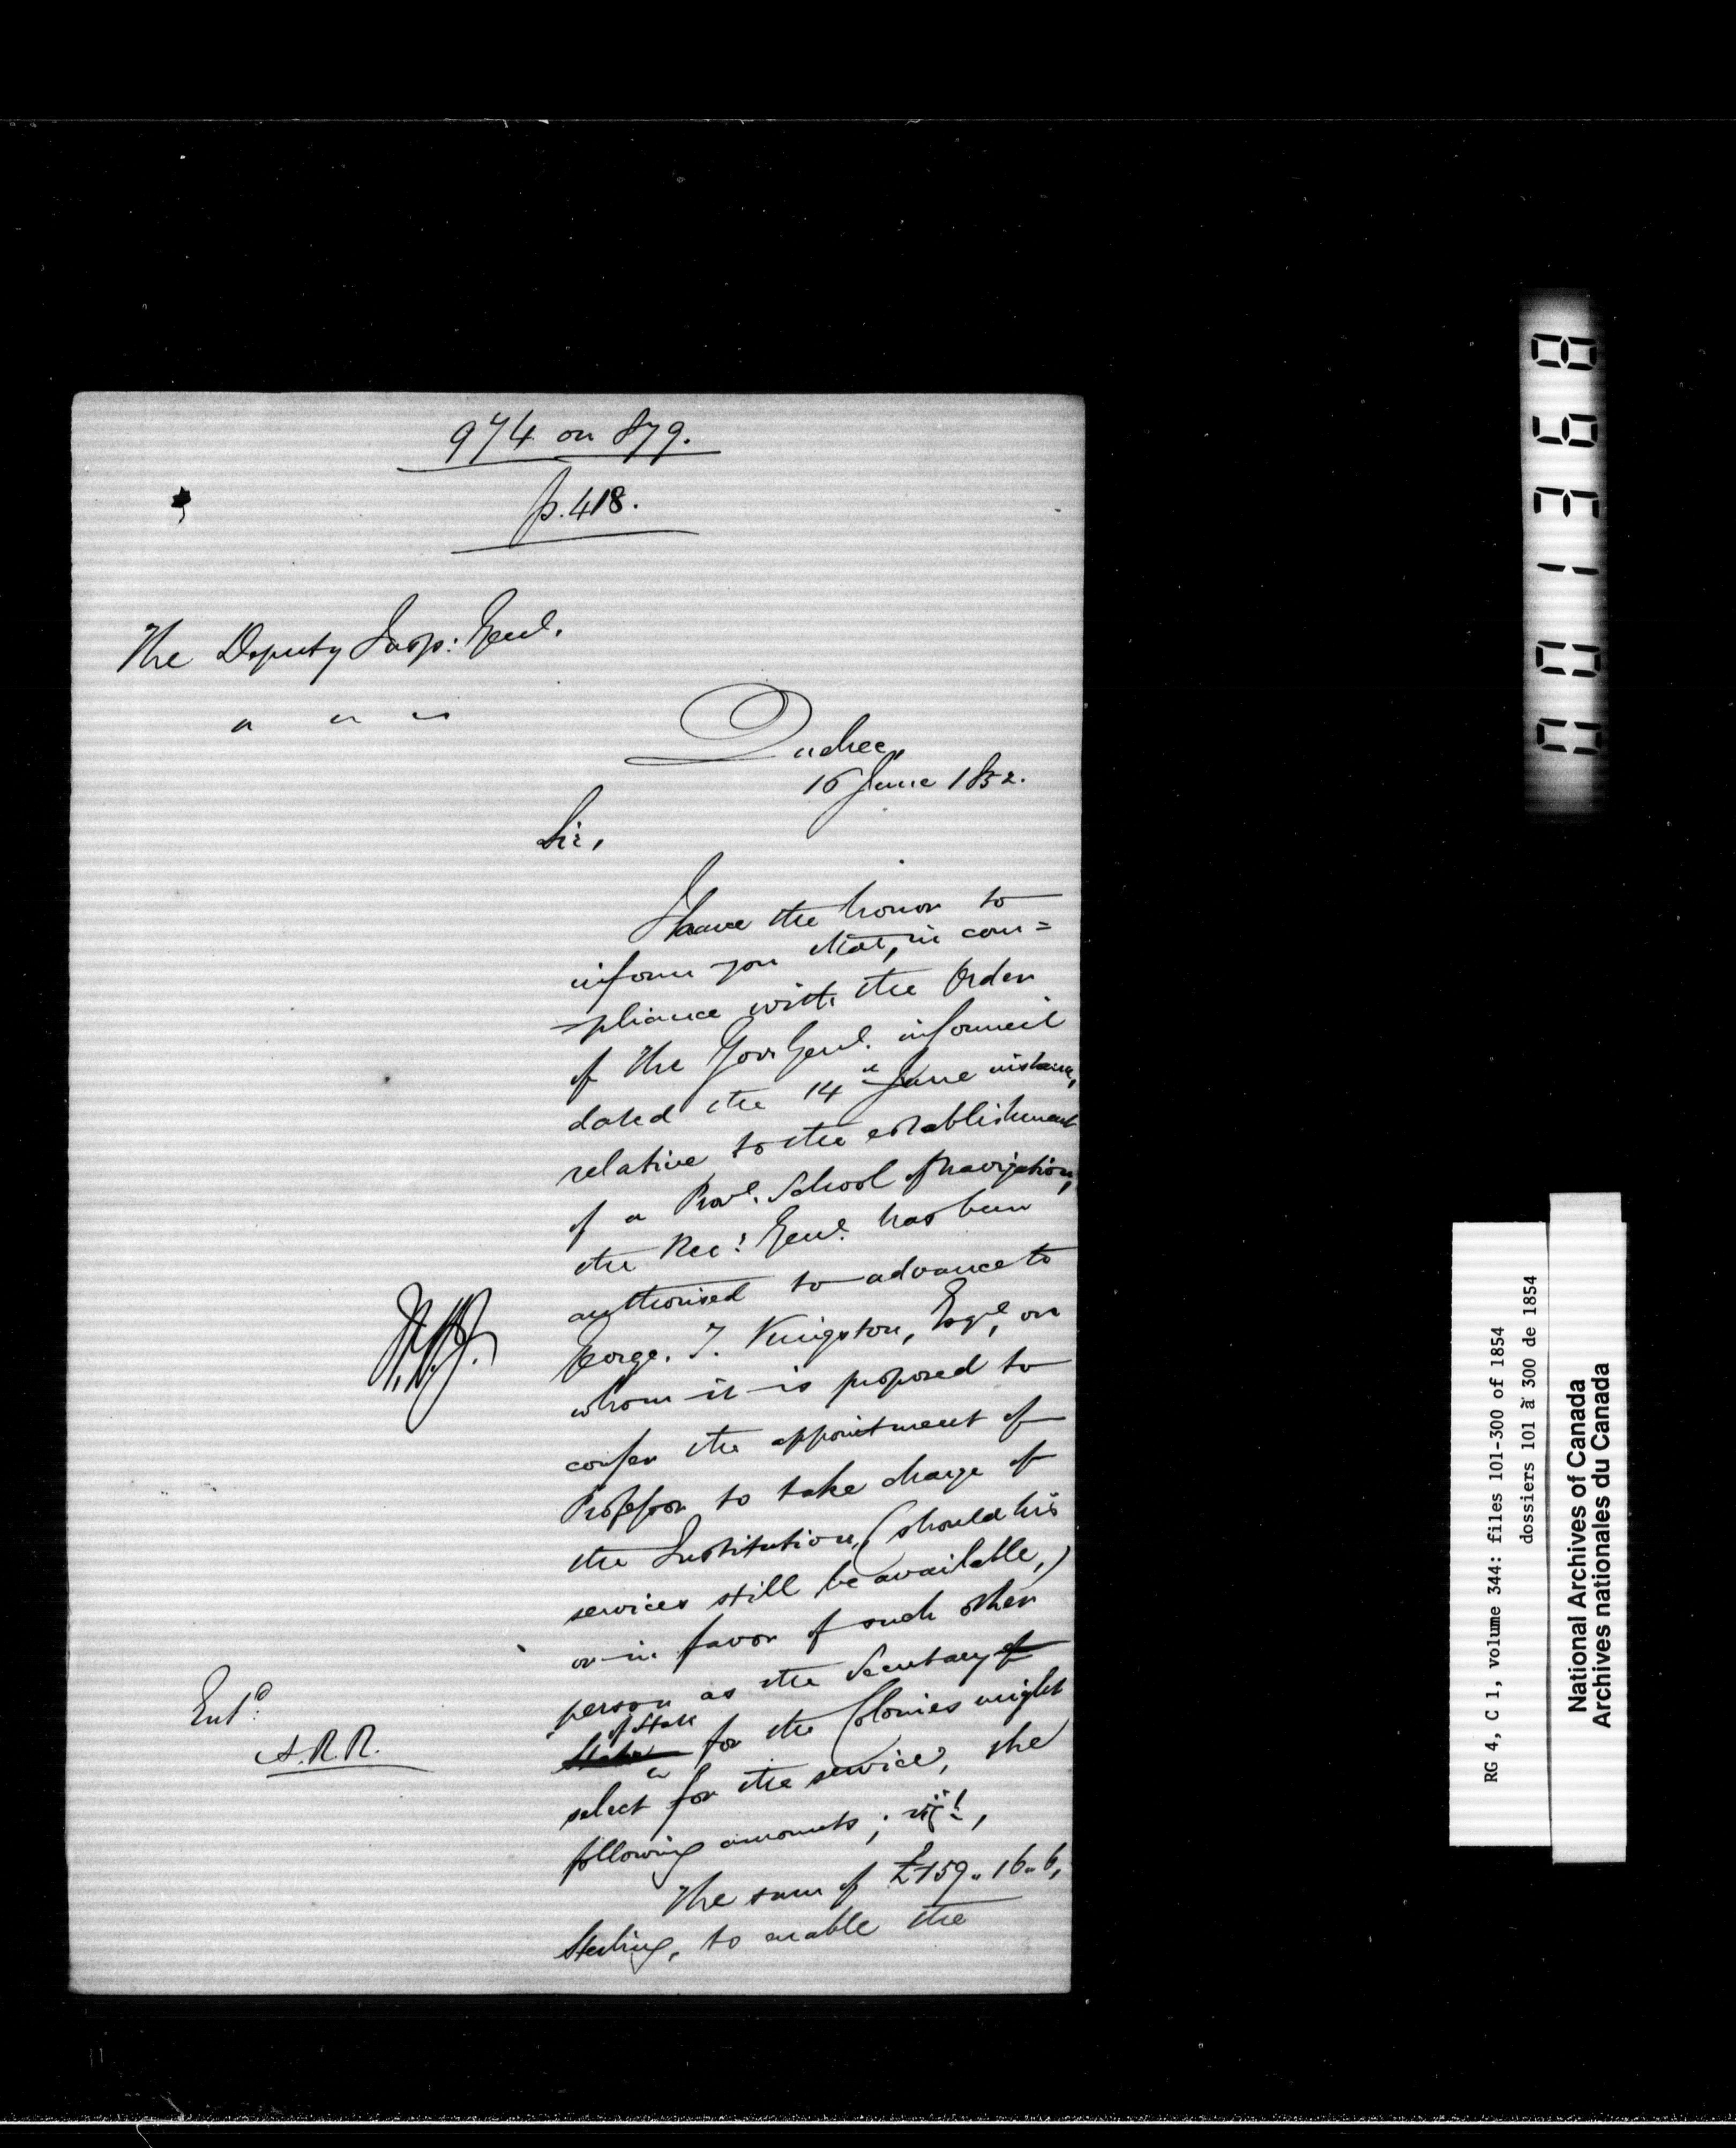 974 on 879.
p. 418.
The Deputy Insp: Genl.
" " "
Quebec,
16 June 1852.
Sir,
I have the honor to
inform you that, in com=
=pliance with the Order
of the Gov. Genl. in Council
dated the 14th June instant,
relative to the establishment
of a Provl. School of Navigation,
the Rec: Genl. has been
authorised to advance to
George. T. Kingston, Esqe, on
whom it is proposed to
confer the appointment of
Professor to take charge of
the Institution, (should his
services still be available,)
or in favor of such other
person as the Secretary of
of State
State for the Colonies might
select for the service, the
following amounts; vizt.,
The sum of £159. 16. 6,
Sterling, to enable the
Entd.
A.R.R.
001368
RG 4, C 1, volume 344: files 101-300 of 1854
dossiers 101 à 300 de 1854
National Archives of Canada
Archives nationales du Canada